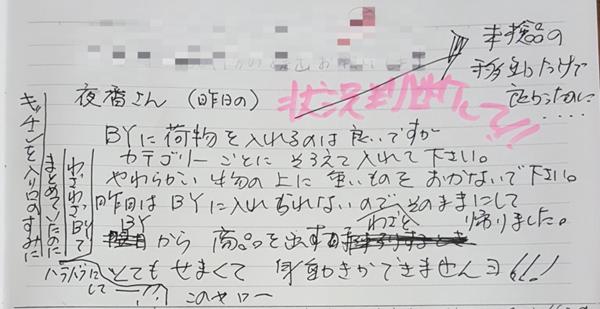 未検品の
移動だけで
良かったのに
....
状況判断して!!
夜番さん (昨日の)
BYに荷物を入れるのは良いですが
カテゴリーごとにそろえて入れて下さい。
やわらかい物の上に重いものをおかないで下さい。
昨日はBYに入れられないのでそのままにして
帰りました。
BYから商品を出す
わざと
とてもせまくて身動きができませんヨ!!!
このヤロー
キッチンを入り口のすみに
まとめていたのに
わざわざBYで
バラバラに
して
!?